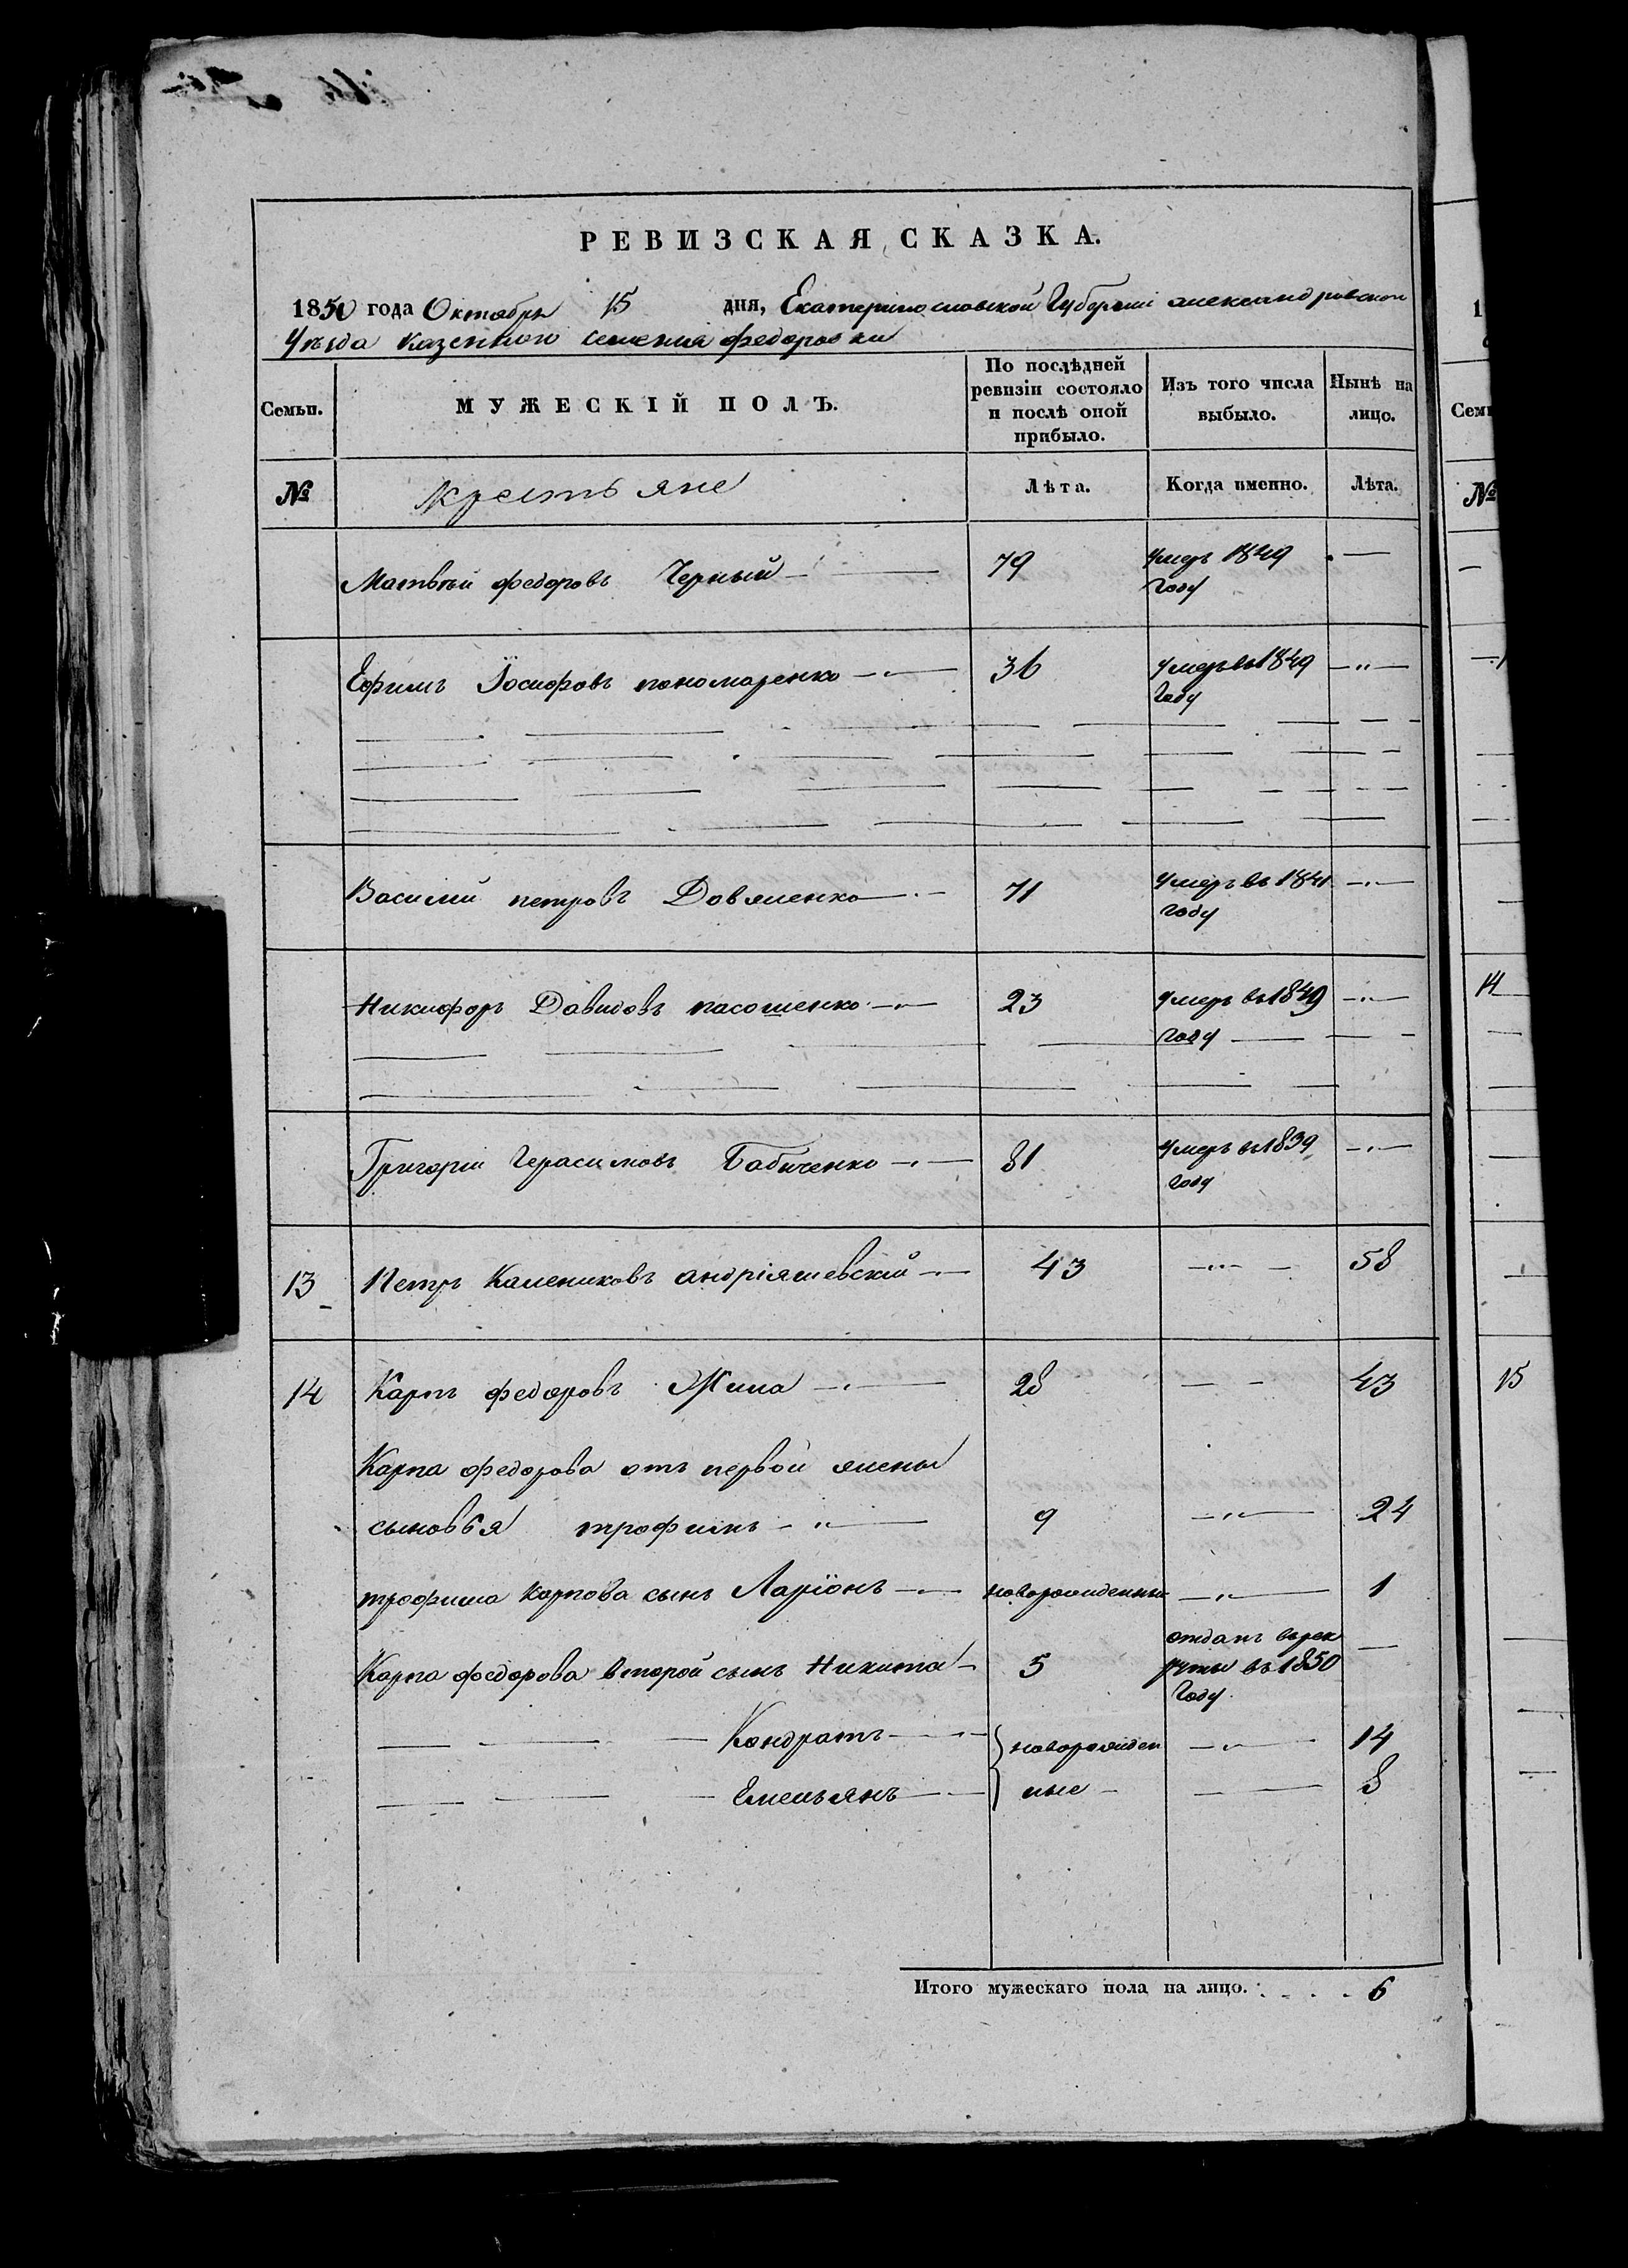 РЕВИЗСКАЯ СКАЗКА.
1850 года Октября 15 дня, Екатеринославской Губерніи александровскои
Уѣзда казенного селенія федоровки
Семьи. МУЖЕСКІЙ ПОЛЪ. По послѣдней ревизіи состояло и послѣ оной прибыло. Изъ того числа выбыло. Нынѣ на лицо.
№ крестьяне Лѣта. Когда именно. Лѣта.
Матвѣй федоровъ Черный 79 умеръ 1849 году —
Ефимъ Іосифовъ пономаренко 36 умеръ въ 1849 году —
Василий петровъ 71 умеръ въ 1841 году —
Никифоръ Давидовъ 23 умеръ въ 1849 году —
Григорій Герасимовъ Бабиченко 81 умеръ въ 1839 году —
13 Петръ Калениковъ андріяшевскій 43 — 58
14 Карпъ федоровъ 28 — 43
Карпа федорова отъ первой жены
сыновья трофимъ 9 — 24
трофима карпова сынъ Ларіонъ новорожденный — 1
Карпа федорова второй сынъ Никита 5 отданъ въ рекруты въ 1850 году —
Кондратъ } новорожден — 14
Емельянъ } ные — 8
Итого мужескаго пола на лицо. . . . . 6
1
Семь
№
14
15